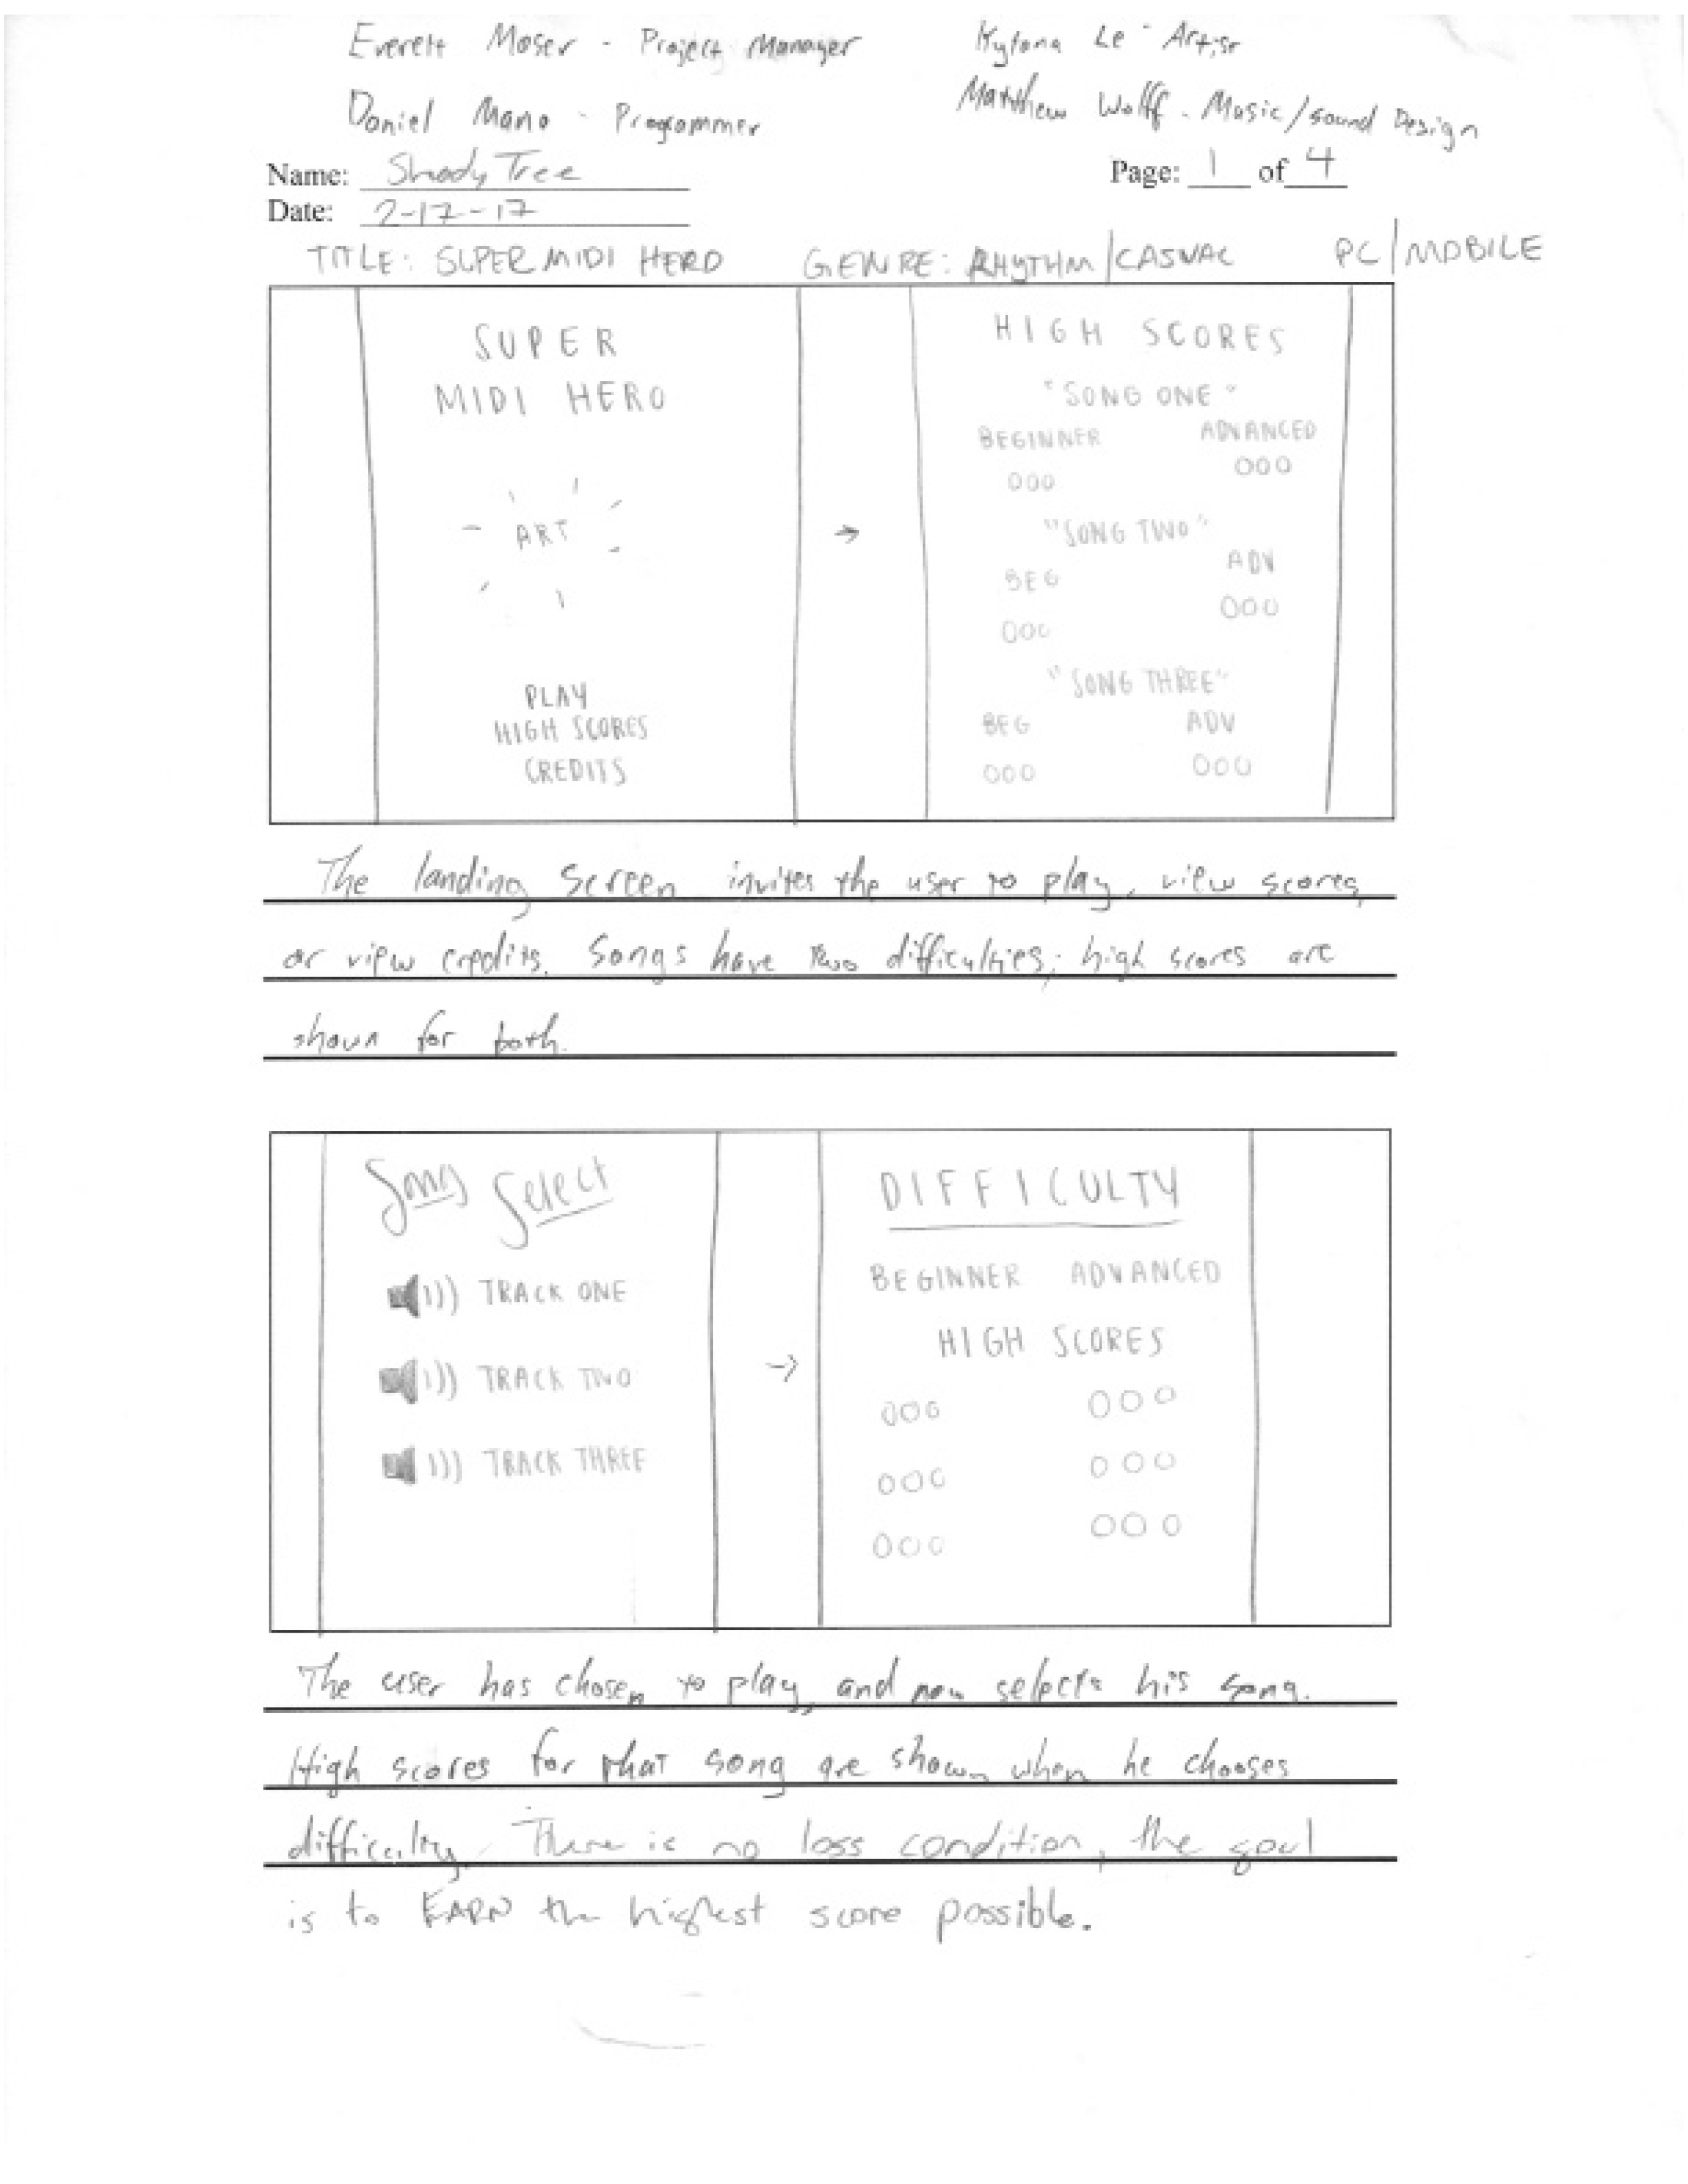 Everett Moser - Project Manager
Kylana Le - Artist
Daniel Mano - Programmer
Matthew Wolff - Music/sound Design
Name: Shady Tree
Page: 1 of 4
Date: 2-17-17
TITLE: SUPER MIDI HERO GENRE: RHYTHM/CASUAL PC/MOBILE
SUPER
MIDI HERO
ART
PLAY
HIGH SCORES
CREDITS
→
HIGH SCORES
"SONG ONE"
BEGINNER ADVANCED
000 000
"SONG TWO"
BEG ADV
000 000
"SONG THREE"
BEG ADV
000 000
The landing screen invites the user to play, view scores,
or view credits. Songs have two difficulties; high scores are
shown for both.
Song Select
TRACK ONE
TRACK TWO
TRACK THREE
→
DIFFICULTY
BEGINNER ADVANCED
HIGH SCORES
000 000
000 000
000 000
The user has chosen to play, and now selects his song.
High scores for that song are shown when he chooses
difficulty. There is no loss condition, the goal
is to EARN the highest score possible.